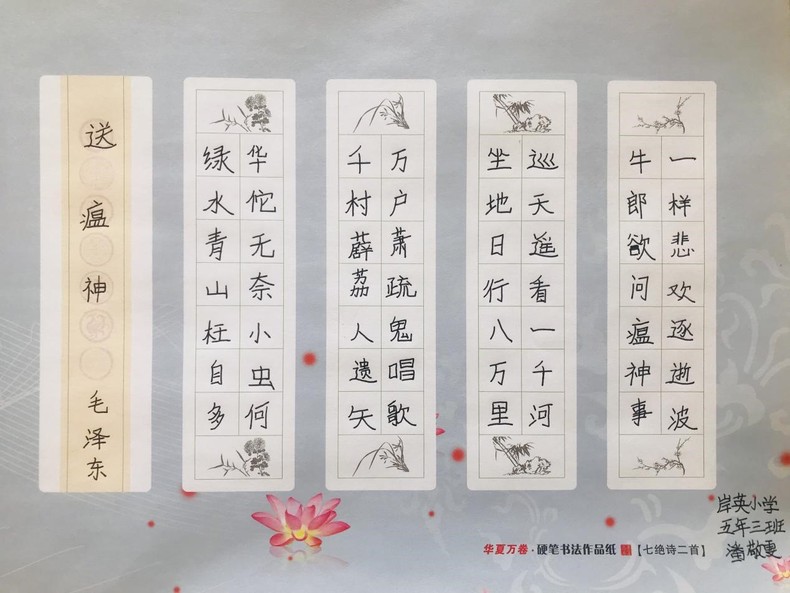 送瘟神
毛泽东
绿水青山枉自多
华佗无奈小虫何
千村薜荔人遗矢
万户萧疏鬼唱歌
坐地日行八万里
巡天遥看一千河
牛郎欲问瘟神事
一样悲欢逐逝波
岸英小学
五年三班
潘敬
华夏万卷·硬笔书法作品纸【七绝诗二首】